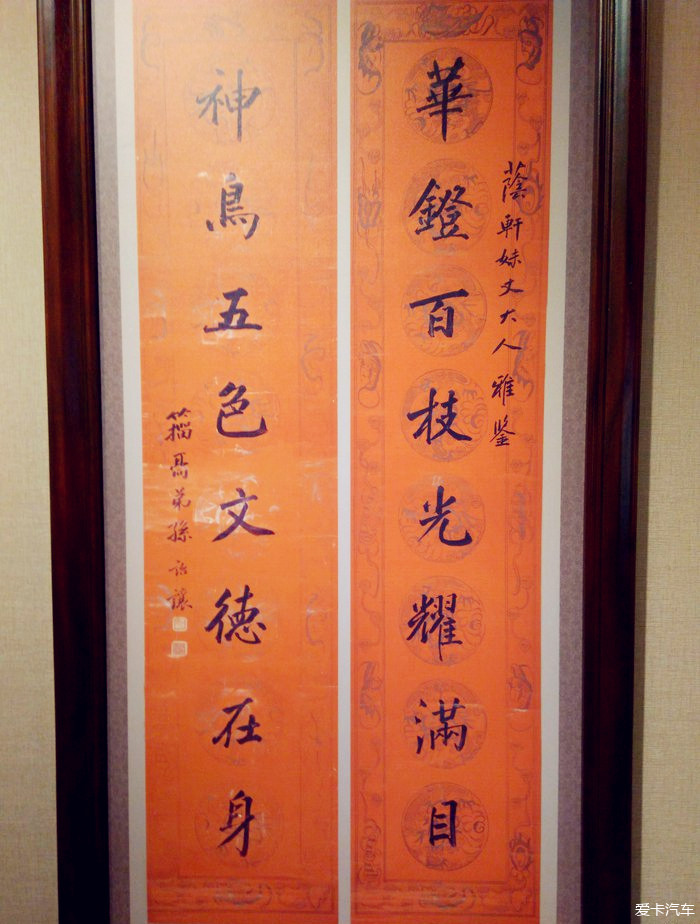 蔭軒妹丈大人雅鑒
華鐙百枝光耀滿目
神鳥五色文德在身
籀高弟孫詒讓
爱卡汽车